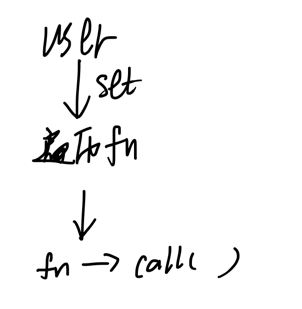 user
set
fn
fn → call( )